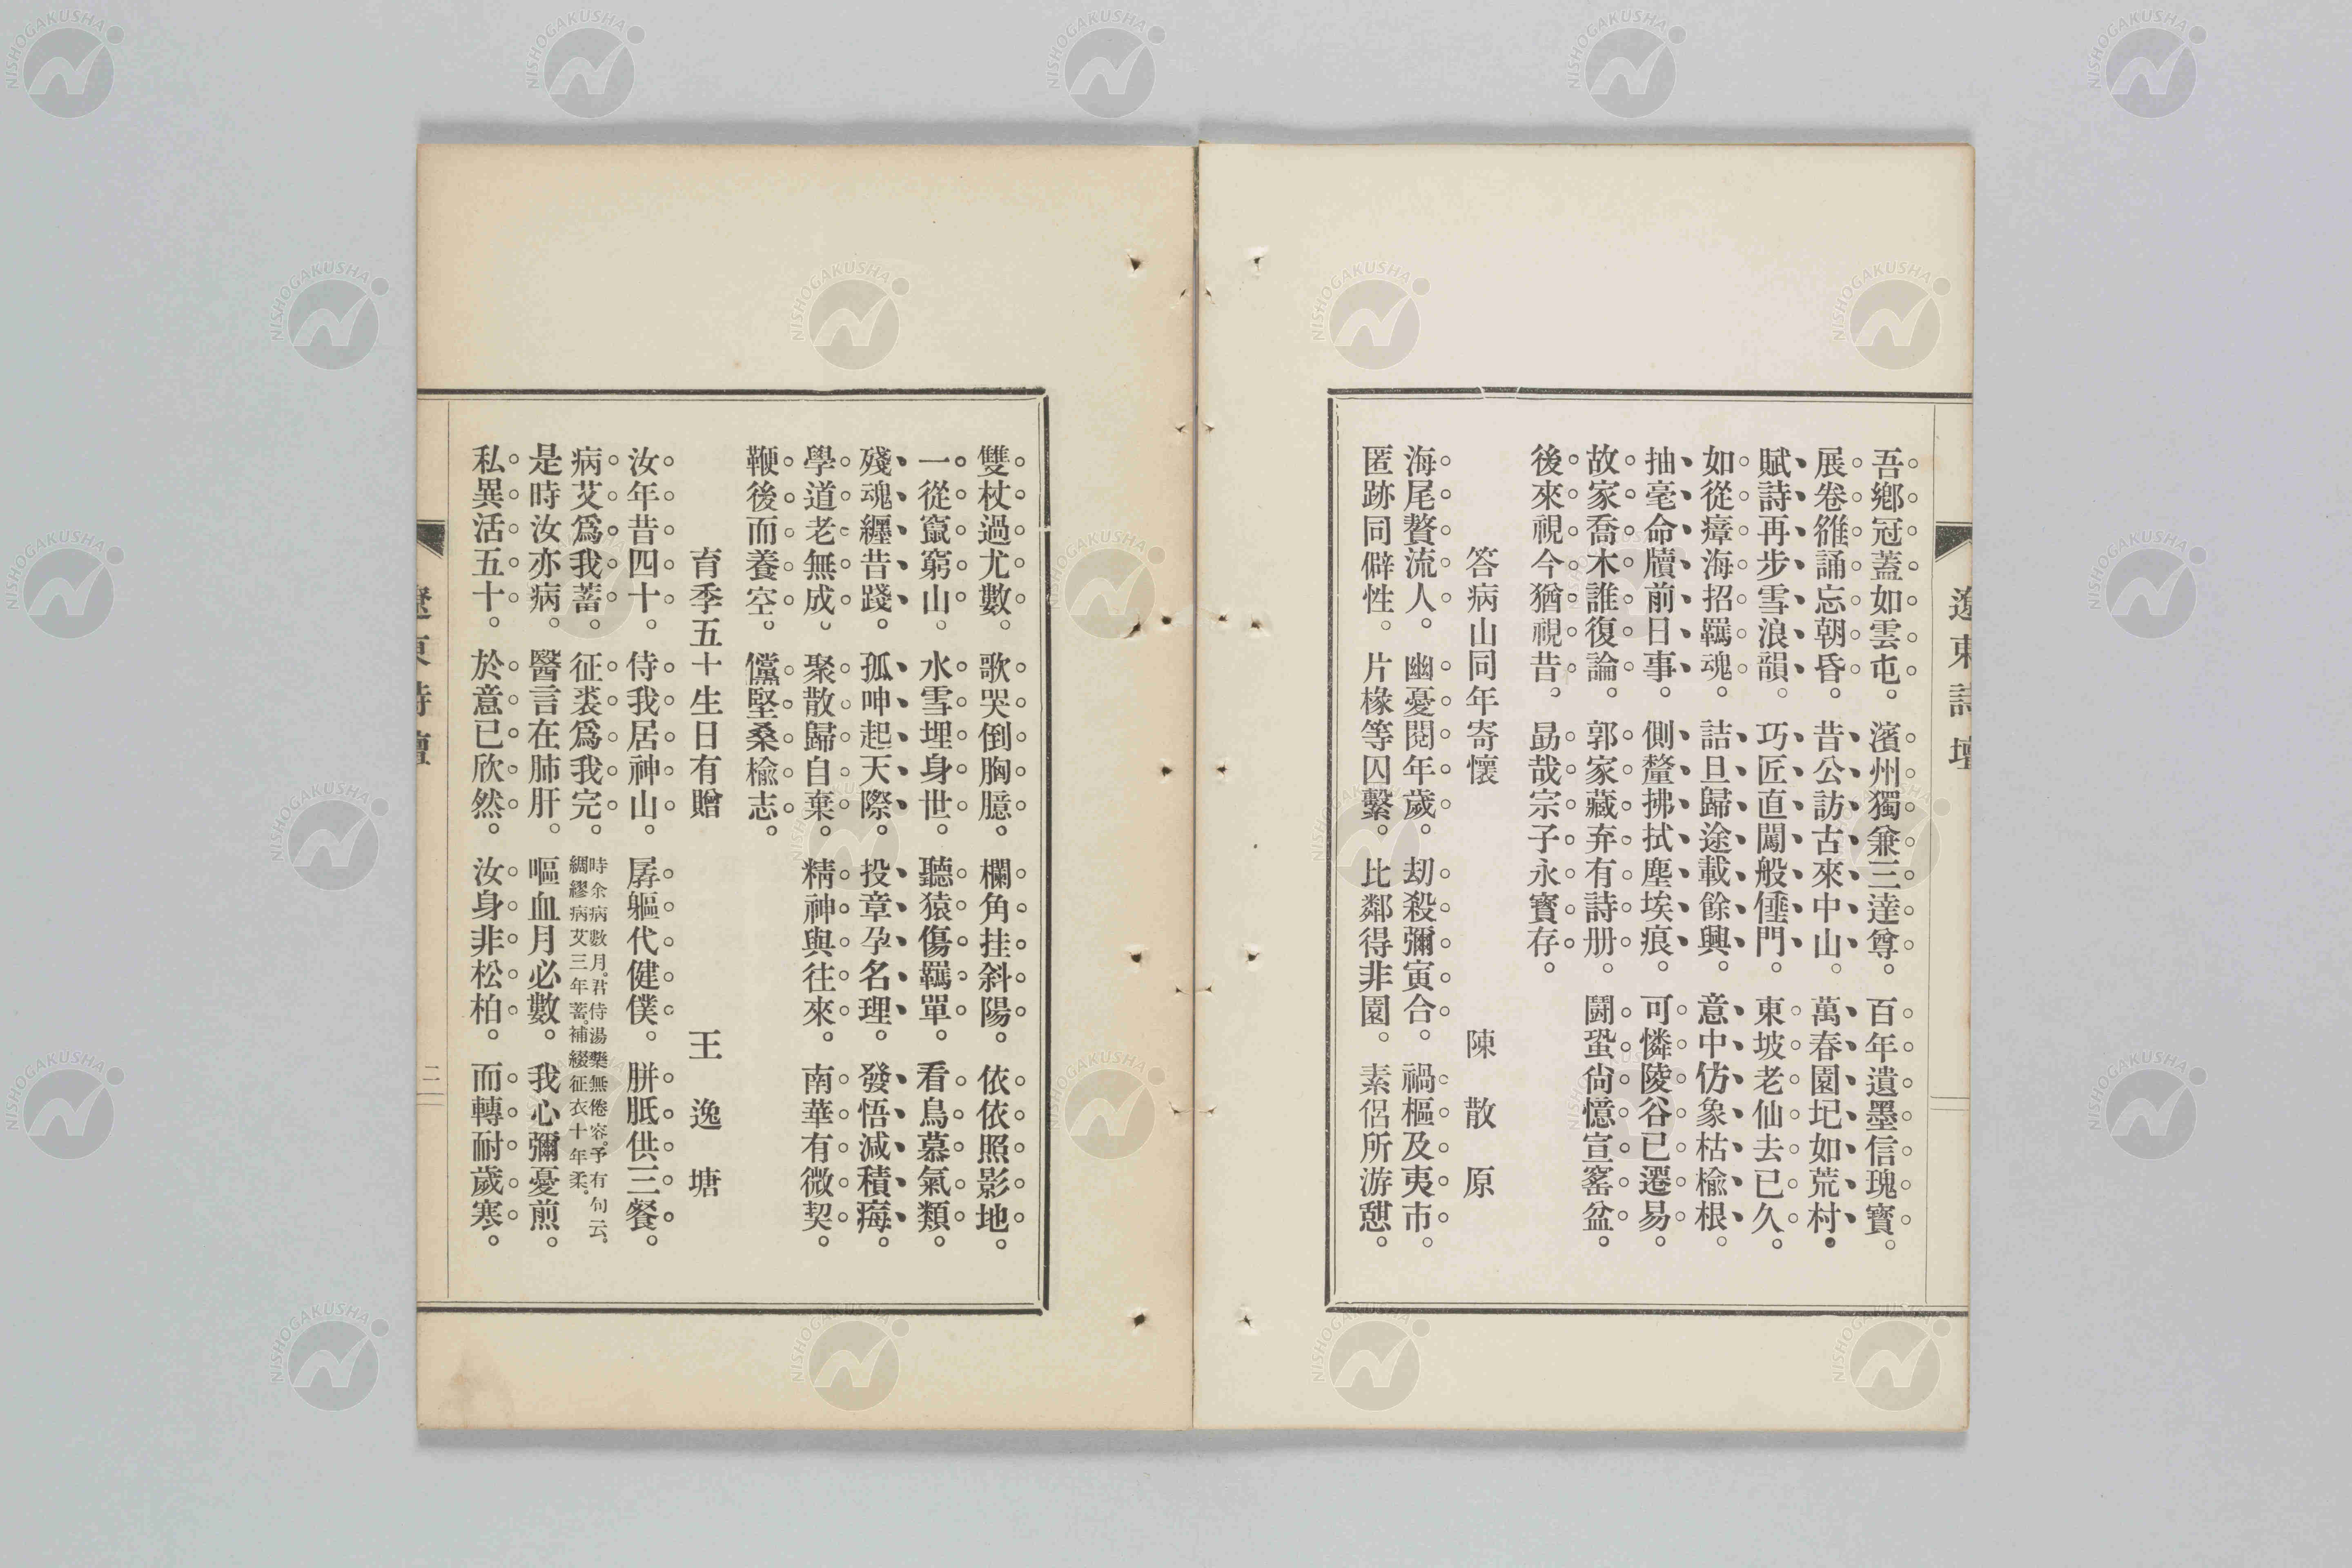 遼東詩壇
吾鄉冠蓋如雲屯。濱州獨兼三達尊。百年遺墨信瑰寶。
展卷雒誦忘朝昏。昔公訪古來中山。萬春園圮如荒村。
賦詩再步雪浪韻。巧匠直闖般倕門。東坡老仙去已久。
如從瘴海招羈魂。詰旦歸途載餘興。意中仿象枯楡根。
抽毫命牘前日事。側釐拂拭塵埃痕。可憐陵谷已遷易。
故家喬木誰復論。郭家藏弆有詩册。鬭蛩尙憶宣窰盆。
後來視今猶視昔。勗哉宗子永寶存。
答病山同年寄懷　陳散原
海尾贅流人。幽憂閱年歲。刧殺彌寅合。禍樞及夷市。
匿跡同僻性。片椽等囚繫。比鄰得非園。素侶所游憩。
雙杖過尤數。歌哭倒胸臆。欄角挂斜陽。依依照影地。
一從竄窮山。水雪埋身世。聽猿傷羈單。看鳥慕氣類。
殘魂纒昔踐。孤呻起天際。投章孕名理。發悟減積痗。
學道老無成。聚散歸自棄。精神與往來。南華有微契。
鞭後而養空。儻堅桑楡志。
育季五十生日有贈　王逸塘
汝年昔四十。侍我居神山。孱軀代健僕。胼胝供三餐。
病艾爲我蓄。征裘爲我完。時余病數月。君侍湯藥無倦容。予有句云。
綢繆病艾三年蓄。補綴征衣十年柔。
是時汝亦病。醫言在肺肝。嘔血月必數。我心彌憂煎。
私異活五十。於意已欣然。汝身非松柏。而轉耐歲寒。
遼東詩壇
二
NISHOGAKUSHA